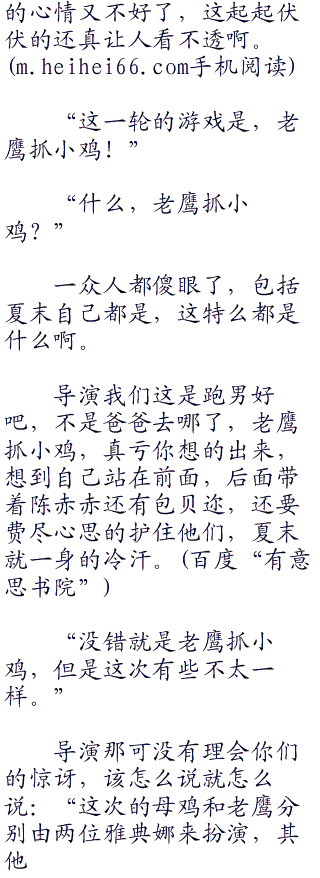 的心情又不好了，这起起伏
伏的还真让人看不透啊。
(m.heihei66.com手机阅读)
“这一轮的游戏是，老
鹰抓小鸡！”
“什么，老鹰抓小
鸡？”
一众人都傻眼了，包括
夏末自己都是，这特么都是
什么啊。
导演我们这是跑男好
吧，不是爸爸去哪了，老鹰
抓小鸡，真亏你想的出来，
想到自己站在前面，后面带
着陈赤赤还有包贝迩，还要
费尽心思的护住他们，夏末
就一身的冷汗。(百度“有意
思书院”)
“没错就是老鹰抓小
鸡，但是这次有些不太一
样。”
导演那可没有理会你们
的惊讶，该怎么说就怎么
说：“这次的母鸡和老鹰分
别由两位雅典娜来扮演，其
他